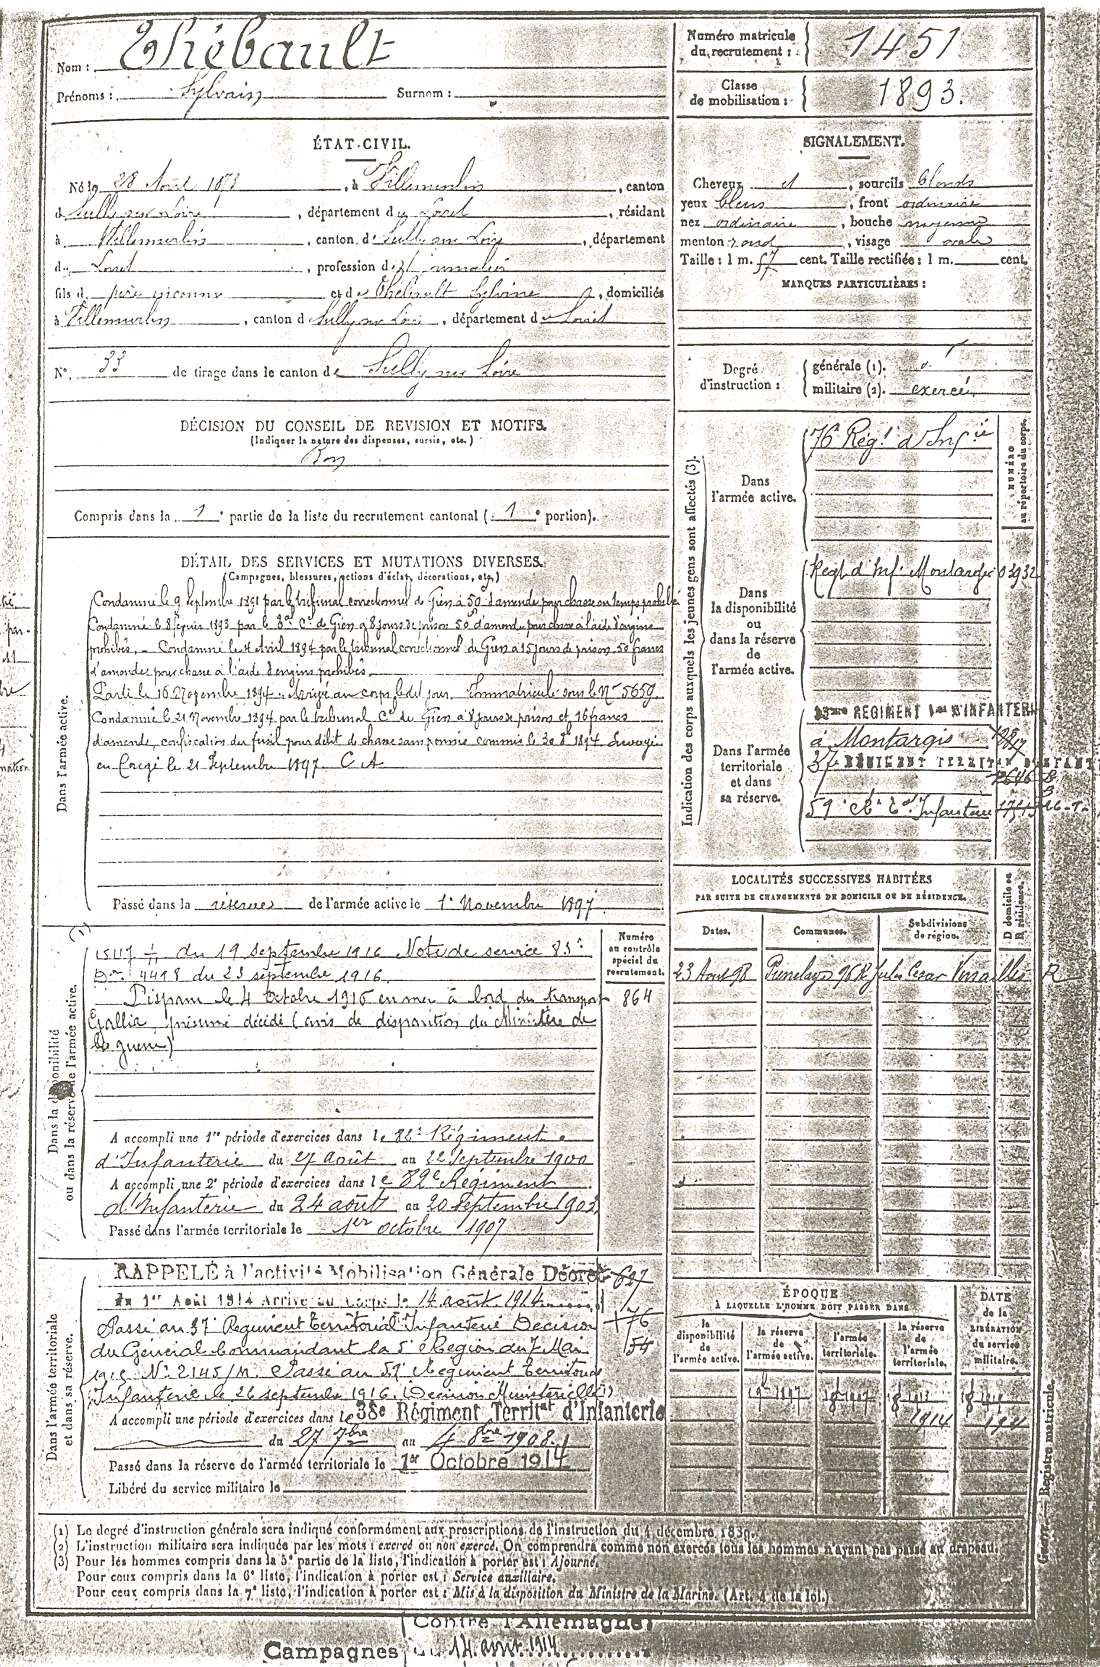 Nom : Thébault
Prénoms : Sylvain Surnom :
Numéro matricule du recrutement : 1451
Classe de mobilisation : 1893.
ÉTAT-CIVIL.
Né le 28 Août 1873, à Villemurlin, canton
d Sully sur Loire, département du Loiret, résidant
à Villemurlin, canton de Sully sur Loire, département
du Loiret, profession de journalier
fils d père inconnu et de Thébault Sylvine, domiciliés
à Villemurlin, canton d Sully sur Loire, département du Loiret
N° 33 de tirage dans le canton de Sully sur Loire
SIGNALEMENT.
Cheveux et, sourcils blonds
yeux bleus, front ordinaire
nez ordinaire, bouche moyenne
menton rond, visage ovale
Taille : 1 m. 57 cent. Taille rectifiée : 1 m. cent.
MARQUES PARTICULIÈRES :
Degré d'instruction :
générale (1).
militaire (2). exercé
DÉCISION DU CONSEIL DE REVISION ET MOTIFS.
(Indiquer la nature des dispenses, sursis, etc.)
Bon
Compris dans la 1e partie de la liste du recrutement cantonal (1e portion).
Indication des corps auxquels les jeunes gens sont affectés (3).
NUMÉRO au répertoire du corps.
Dans l'armée active.
76 Régt d'Infie
Dans la disponibilité ou dans la réserve de l'armée active.
Régt d'Inf. Montargis 03932
Dans l'armée territoriale et dans sa réserve.
RÉGIMENT Ial D'INFANTERIE
à Montargis
37e RÉGIMENT TERRIT. D'INFANTERIE
59e Rt Tal Infanterie
DÉTAIL DES SERVICES ET MUTATIONS DIVERSES.
(Campagnes, blessures, actions d'éclat, décorations, etc.)
Dans l'armée active.
Condamné le 9 Septembre 1891 par le tribunal correctionnel de Gien à 50f d'amende pour chasse en temps prohibé
Condamné le 8 février 1893 par le Bal Cel de Gien à 8 jours de prison 50f d'amende pour chasse à l'aide d'engins
prohibés. - Condamné le 4 Avril 1894 par le tribunal correctionnel de Gien à 15 jours de prison, 50 francs
d'amendes pour chasse à l'aide d'engins prohibés.
Parti le 16 Novembre 1894. Arrivé au corps le dit jour. Immatriculé sous le No 5659.
Condamné le 21 Novembre 1894 par le tribunal Cel de Gien à 8 jours de prison et 16 francs
d'amende, confiscation du fusil, pour délit de chasse sans permis commis le 30 8e 1894. Envoyé
en Congé le 21 Septembre 1897. C A
Passé dans la réserve de l'armée active le 1er Novembre 1897.
LOCALITÉS SUCCESSIVES HABITÉES
PAR SUITE DE CHANGEMENTS DE DOMICILE OU DE RÉSIDENCE.
Dates. Communes. Subdivisions de région. D domicile ou R résidence.
23 Août 98 Versailles R
Numéro au contrôle spécial du recrutement.
864
Dans la disponibilité ou dans la réserve de l'armée active.
(1)
du 19 septembre 1916 Note de service 83e
4418 du 23 septembre 1916.
Disparu le 4 octobre 1916 en mer à bord du transport
Gallia, présumé décédé (avis de disparition du Ministère de
la guerre)
A accompli une 1re période d'exercices dans le 82e Régiment
d'Infanterie du 27 août au 22 Septembre 1900
A accompli une 2e période d'exercices dans le 82e Régiment
d'Infanterie du 24 août au 20 Septembre 1903.
Passé dans l'armée territoriale le 1er octobre 1907
Dans l'armée territoriale et dans sa réserve.
RAPPELÉ à l'activité Mobilisation Générale Décret
du 1er Août 1914 Arrivé au Corps le 14 août 1914
Passé au 37e Régiment Territorial Infanterie Décision
du Général Commandant la 5e Région du 7 Mai
1915 No 2145/M. Passé au 59e Régiment Territorial
Infanterie le 26 septembre 1916. (Décision Ministérielle)
A accompli une période d'exercices dans le 38e Régiment Territal d'Infanterie
du 27 7bre au 4 8bre 1908.
Passé dans la réserve de l'armée territoriale le 1er Octobre 1914
Libéré du service militaire le
627
176
54
ÉPOQUE
À LAQUELLE L'HOMME DOIT PASSER DANS
la disponibilité de l'armée active. la réserve de l'armée active. l'armée territoriale. la réserve de l'armée territoriale.
DATE de la LIBÉRATION du service militaire.
1914
(1) Le degré d'instruction générale sera indiqué conformément aux prescriptions de l'instruction du 4 décembre 1889.
(2) L'instruction militaire sera indiquée par les mots : exercé ou non exercé. On comprendra comme non exercés tous les hommes n'ayant pas passé au drapeau.
(3) Pour les hommes compris dans la 5e partie de la liste, l'indication à porter est : Ajourné.
Pour ceux compris dans la 6e liste, l'indication à porter est : Service auxiliaire.
Pour ceux compris dans la 7e liste, l'indication à porter est : Mis à la disposition du Ministre de la Marine. (Art. 4 de la loi.)
Registre matricule.
(Contre l'Allemagne)
Campagnes 14 août 1914